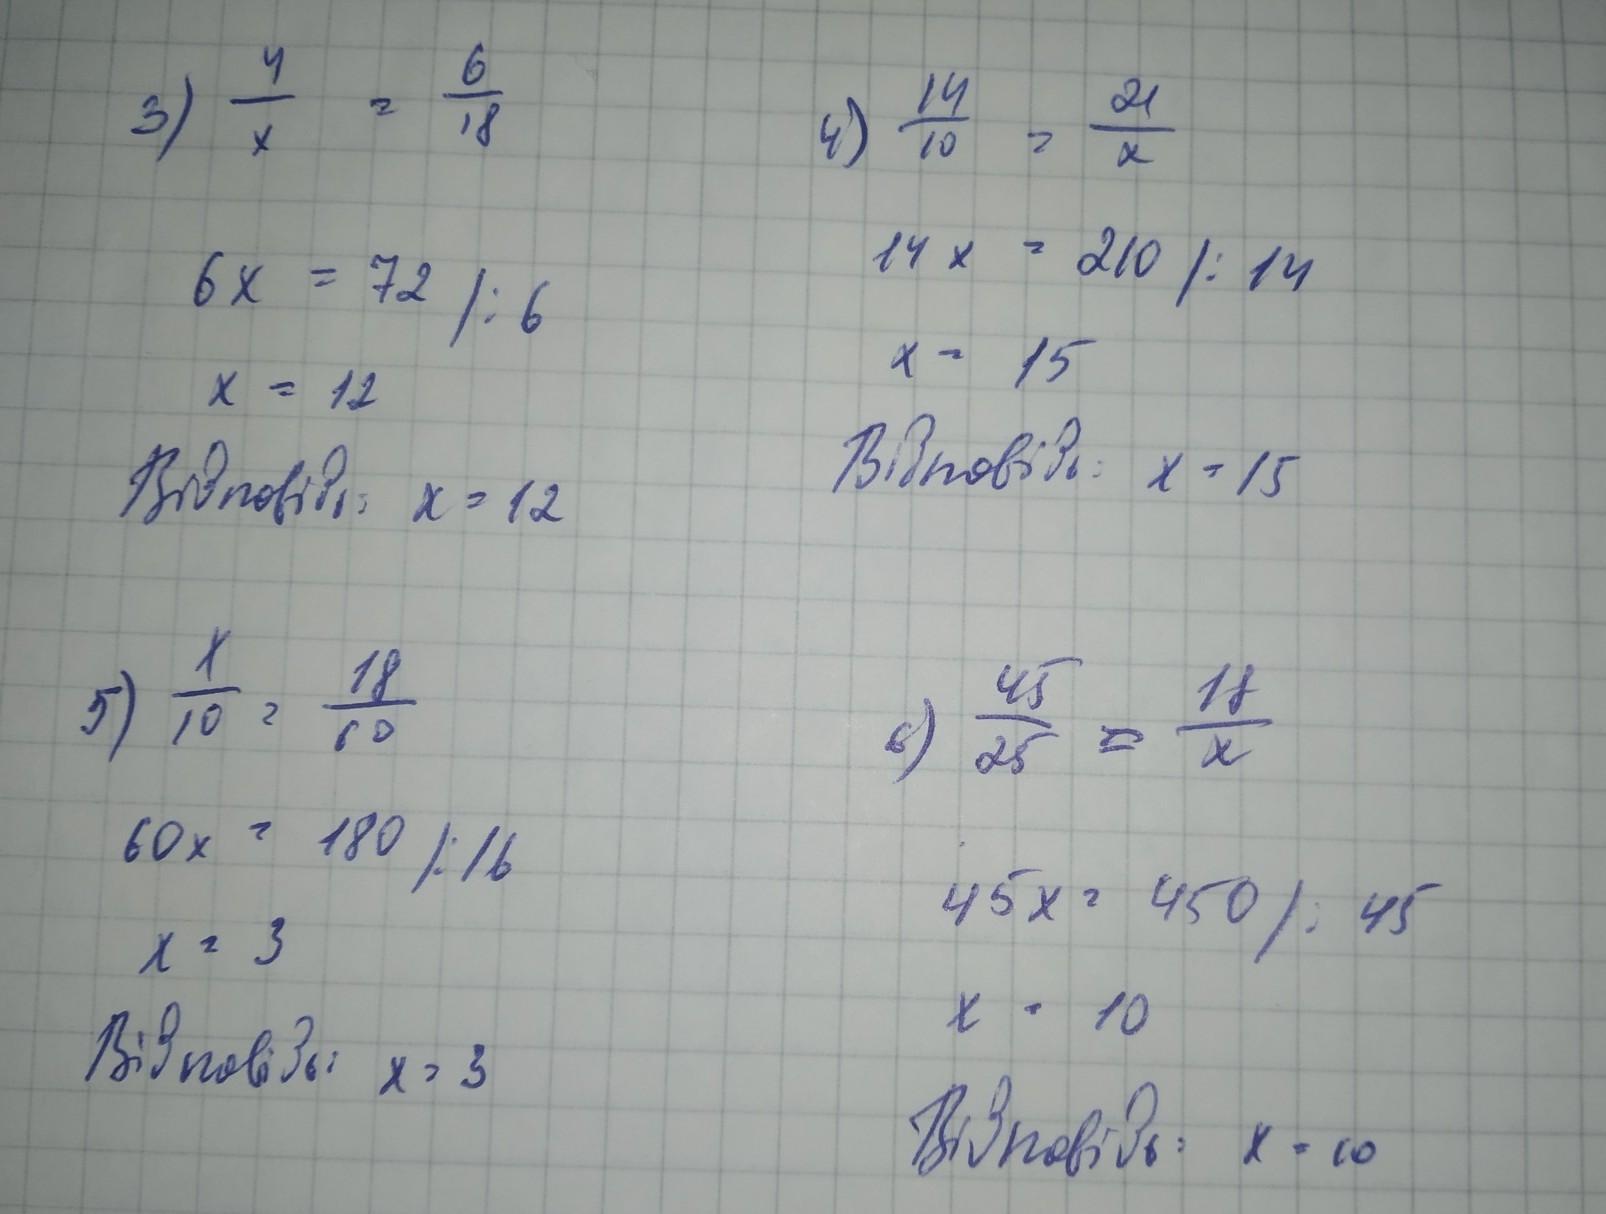 3) 4/x = 6/18
6x = 72 /: 6
x = 12
Відповідь: x = 12
4) 14/10 = 21/x
14x = 210 /: 14
x = 15
Відповідь: x = 15
5) x/10 = 18/60
60x = 180 /: 16
x = 3
Відповідь: x = 3
6) 45/25 = 18/x
45x = 450 /: 45
x = 10
Відповідь: x = 10